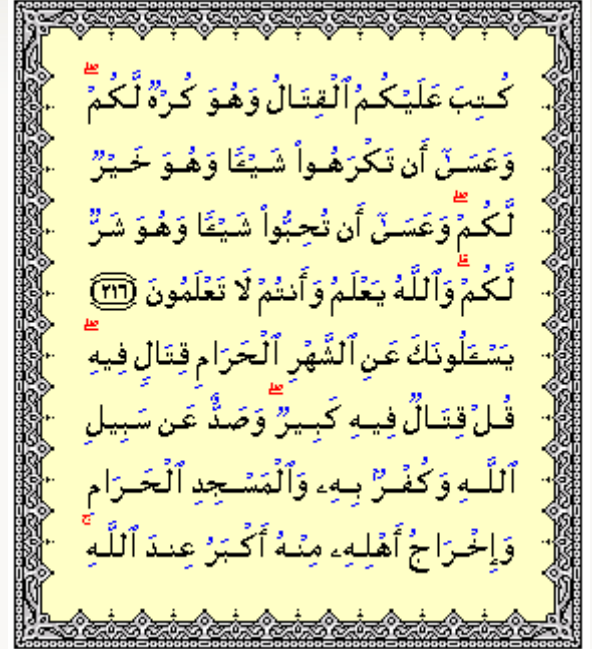 كُتِبَ عَلَيْكُمُ ٱلْقِتَالُ وَهُوَ كُرْهٌ لَّكُمْ ۖ
وَعَسَىٰٓ أَن تَكْرَهُوا۟ شَيْـًٔا وَهُوَ خَيْرٌ
لَّكُمْ ۖ وَعَسَىٰٓ أَن تُحِبُّوا۟ شَيْـًٔا وَهُوَ شَرٌّ
لَّكُمْ ۗ وَٱللَّهُ يَعْلَمُ وَأَنتُمْ لَا تَعْلَمُونَ ﴿٢١٦﴾
يَسْـَٔلُونَكَ عَنِ ٱلشَّهْرِ ٱلْحَرَامِ قِتَالٍ فِيهِ ۖ
قُلْ قِتَالٌ فِيهِ كَبِيرٌ ۖ وَصَدٌّ عَن سَبِيلِ
ٱللَّهِ وَكُفْرٌۢ بِهِۦ وَٱلْمَسْجِدِ ٱلْحَرَامِ
وَإِخْرَاجُ أَهْلِهِۦ مِنْهُ أَكْبَرُ عِندَ ٱللَّهِ ۚ